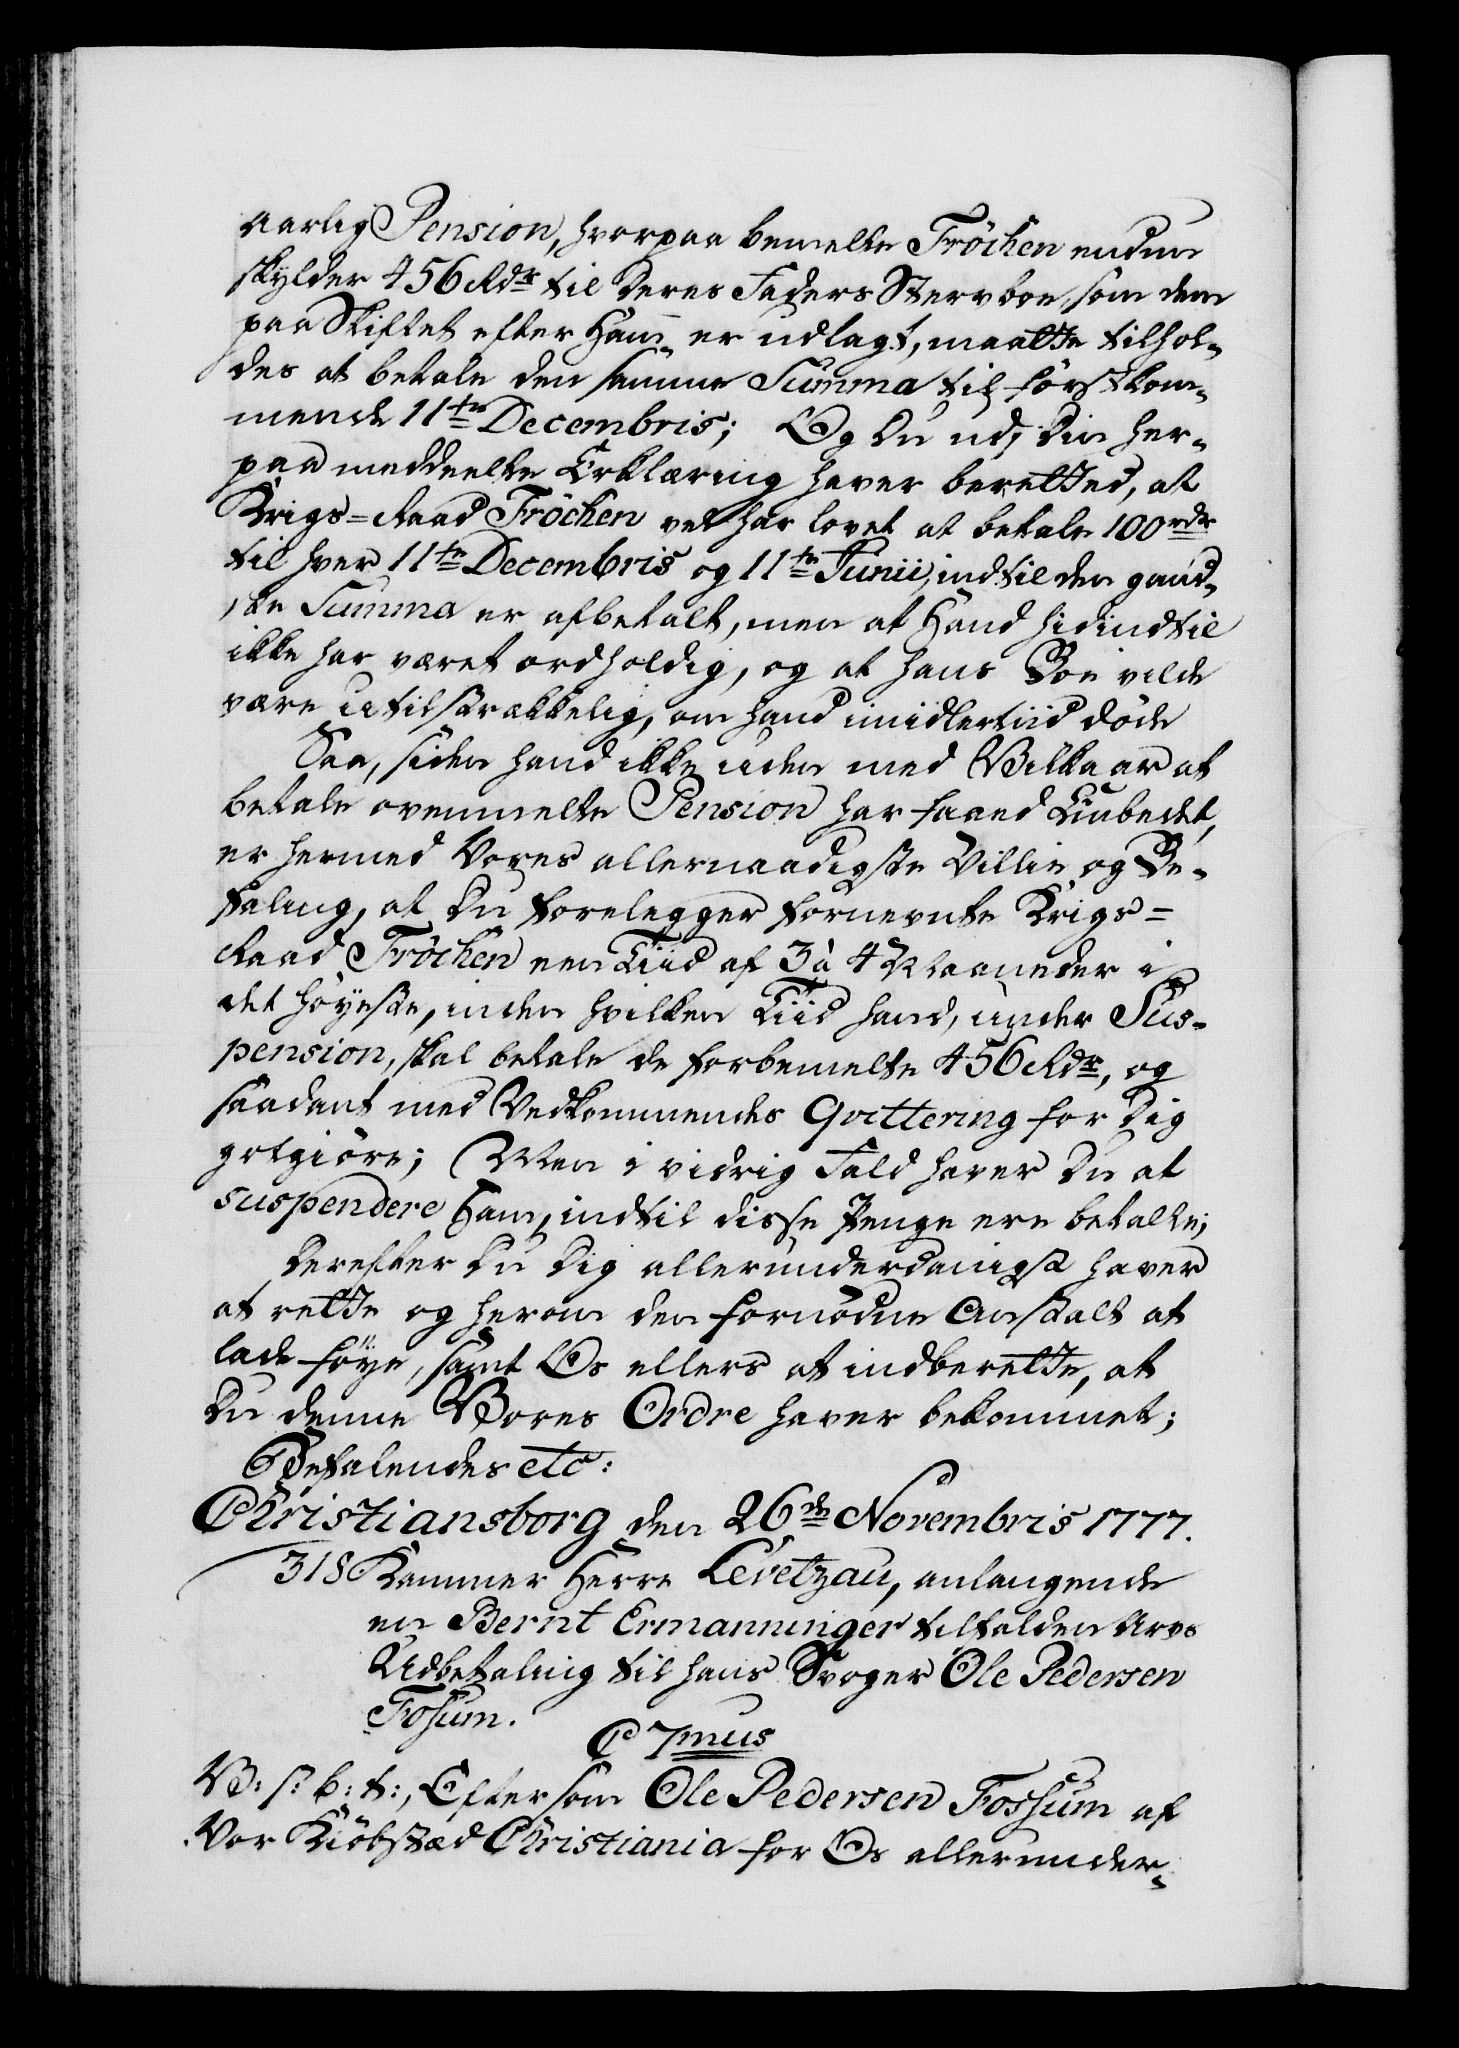 aarlig Pension, hvorpaa bemelte Fröchen endnu
skylder 456 Rdr til deres Faders Sterboe, som dem
paa Skiftet efter Ham er udlagt, maatte tilhol-
des at betale den samme Summa til förstkom-
mende 11te Decembris; Og Du udj Din her-
paa meddeelte Erklæring haver berettet, at
Krigs-Raad Fröchen vel har lovet at betale 100 rdr
til hver 11te Decembris og 11te Junii, indtil den gand-
ske Summa er afbetalt, men at Hand hidindtil
ikke har været ordholdig, og at hans Boe vilde
være utilstrækkelig, om hand imidlertiid döde
Saa, siden hand ikke uden med Vilkaar at
betale ovenmelte Pension har faaed Embedet,
er hermed Vores allernaadigste Villie og Be-
faling, at Du forelegger fornevnte Krigs-
Raad Fröchen een Tiid af 3 à 4 Maaneder i
det höyeste, inden hvilken Tiid hand, under Sus-
pension, skal betale de forbemelte 456 Rdr, og
saadant med Vedkommendes Qvittering for Dig
gotgiöre; Men i vidrig Fald haver Du at
suspendere Ham, indtil disse Penge ere betalte;
Derefter Du Dig allerunderdanigst haver
at rette og herom den fornödne Anstalt at
lade föye, samt Os ellers at indberette, at
Du denne Vores Ordre haver bekommet;
Befalendes etc:
Christiansborg den 26de Novembris 1777.
318 Kammer Herre Levetzau, anlangende
en Bernt Ermanninger tilfalden Arvs
Udbetaling til hans Svoger Ole Pedersen
Fosum.
C 7mus
V: s: b: t:, Eftersom Ole Pedersen Fossum af
Vor Kiöbstæd Christiania for Os allerunder-